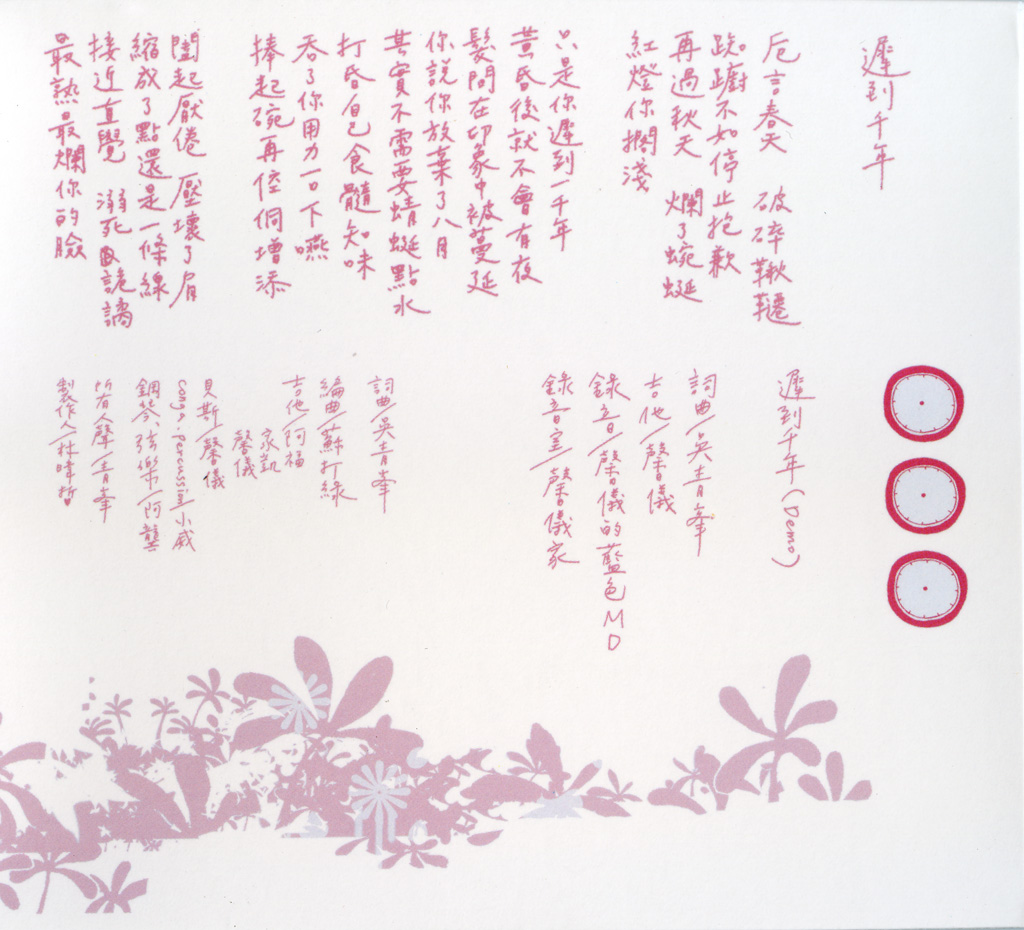 遲到千年
卮言春天 破碎鞦韆
踟躕不如停止抱歉
再過秋天 爛了蜿蜒
紅燈你擱淺
只是你遲到一千年
黃昏後就不會有夜
髮問在印象中被蔓延
你說你放棄了八月
其實不需要蜻蜓點水
打昏自己食髓知味
吞了你用力一口下嚥
捧起碗再倥侗增添
闔起厭倦 壓壞了眉
縮放了點還是一條線
接近直覺 溺死詭譎
最熱最爛你的臉
遲到千年(Demo)
詞曲/吳青峯
吉他/馨儀
錄音/馨儀的藍色MD
錄音室/馨儀家
詞曲/吳青峯
編曲/蘇打綠
吉他/阿福
家凱
馨儀
貝斯/馨儀
conga.percussion/小威
鋼琴、弦樂/阿龔
所有人聲/青峯
製作人/林暐哲